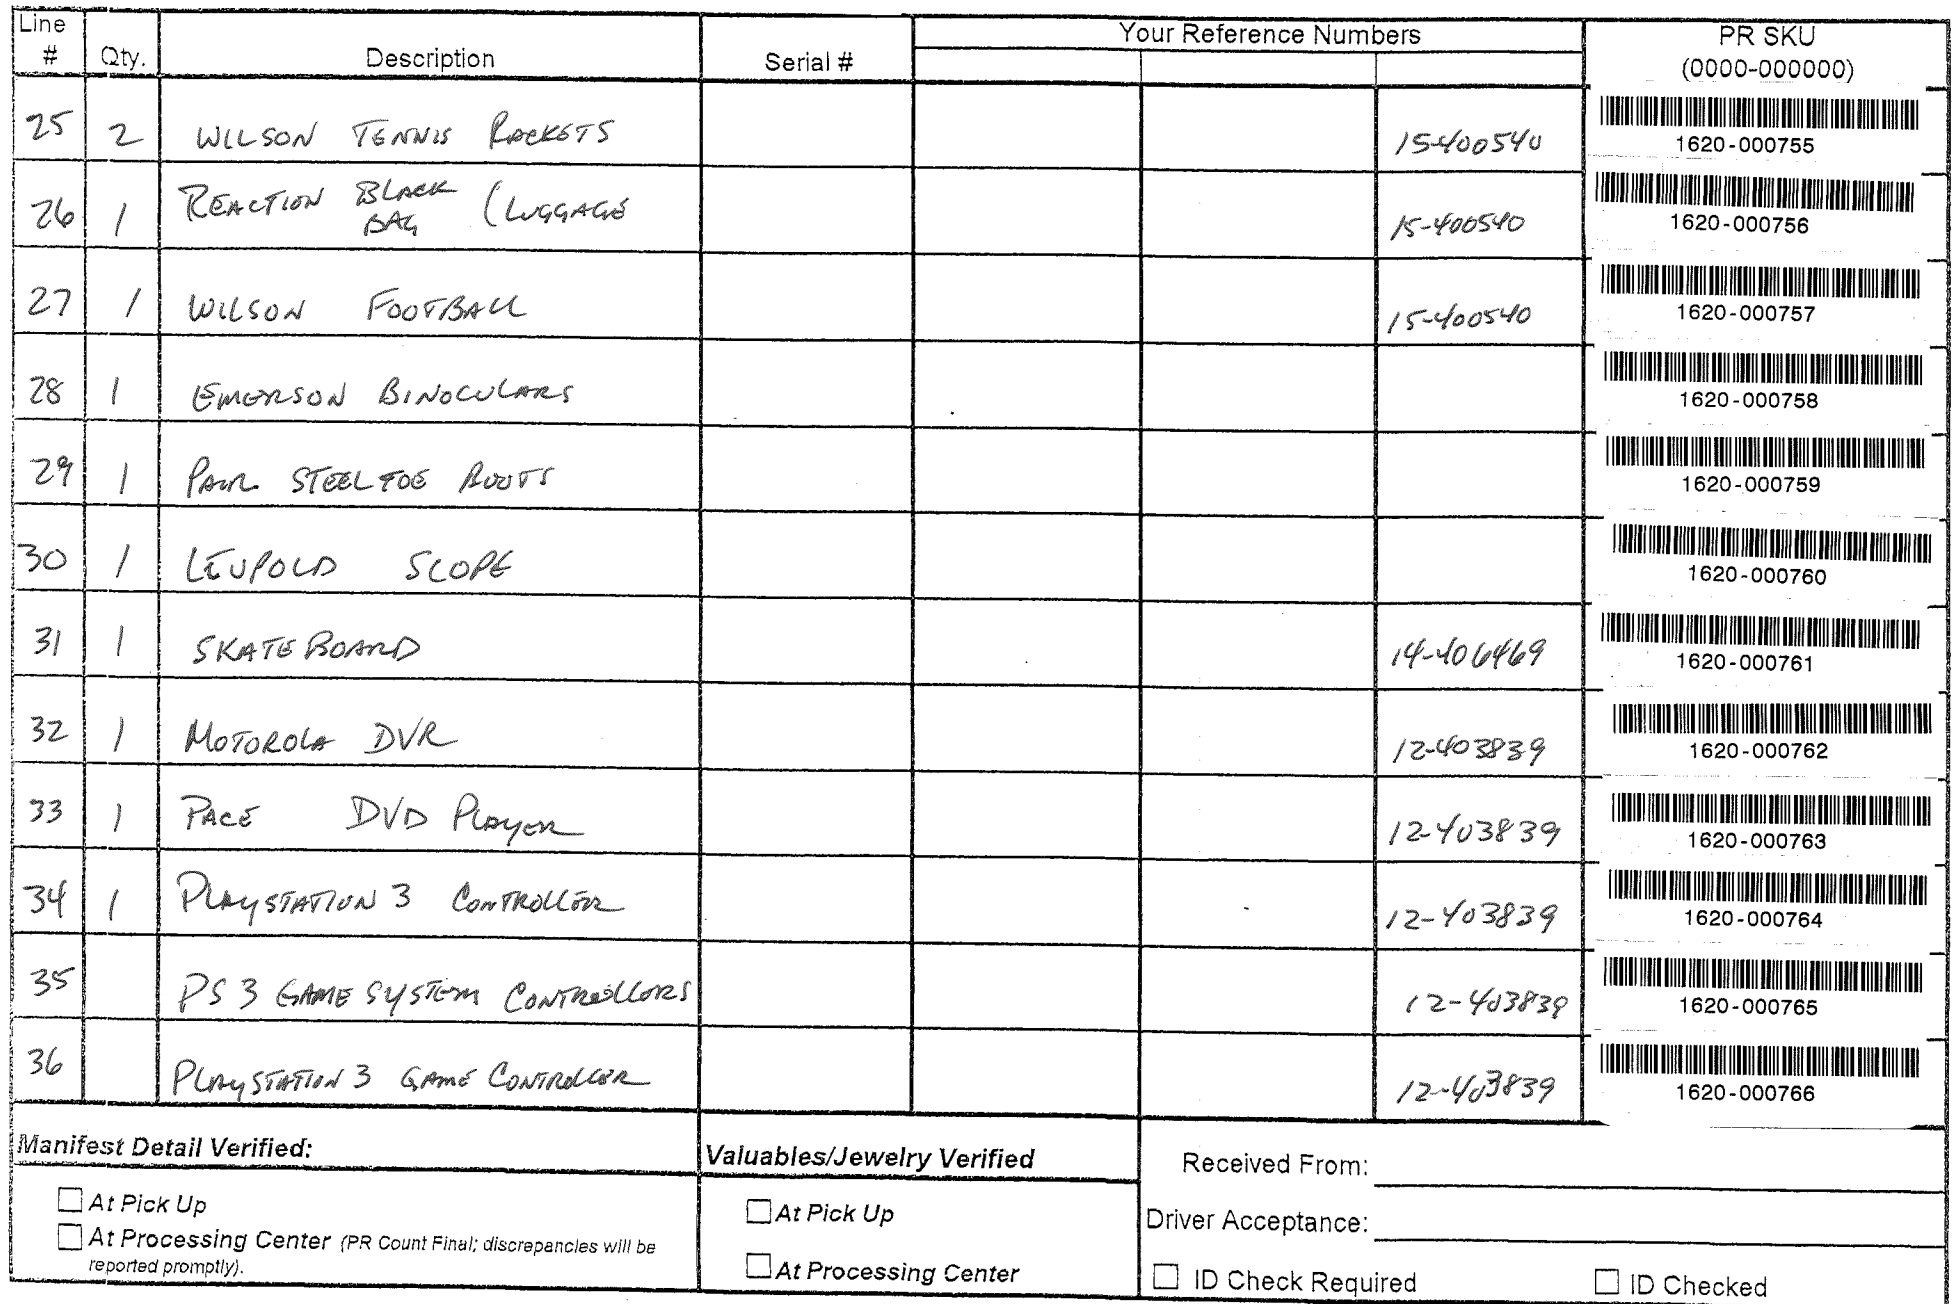 Line # Qty. Description Serial # Your Reference Numbers PR SKU (0000-000000)
25 2 WILSON TENNIS RACKETS 15-400540 1620-000755
26 1 REACTION BLACK BAG (LUGGAGE 15-400540 1620-000756
27 1 WILSON FOOTBALL 15-400540 1620-000757
28 1 EMERSON BINOCULARS 1620-000758
29 1 PAIR STEEL TOE BOOTS 1620-000759
30 1 LEUPOLD SCOPE 1620-000760
31 1 SKATEBOARD 14-406469 1620-000761
32 1 MOTOROLA DVR 12-403839 1620-000762
33 1 PACE DVD PLAYER 12-403839 1620-000763
34 1 PLAYSTATION 3 CONTROLLER 12-403839 1620-000764
35 PS 3 GAME SYSTEM CONTROLLORS 12-403839 1620-000765
36 PLAYSTATION 3 GAME CONTROLLER 12-403839 1620-000766
Manifest Detail Verified: Valuables/Jewelry Verified Received From:
At Pick Up At Pick Up Driver Acceptance:
At Processing Center (PR Count Final; discrepancies will be
reported promptly). At Processing Center ID Check Required ID Checked